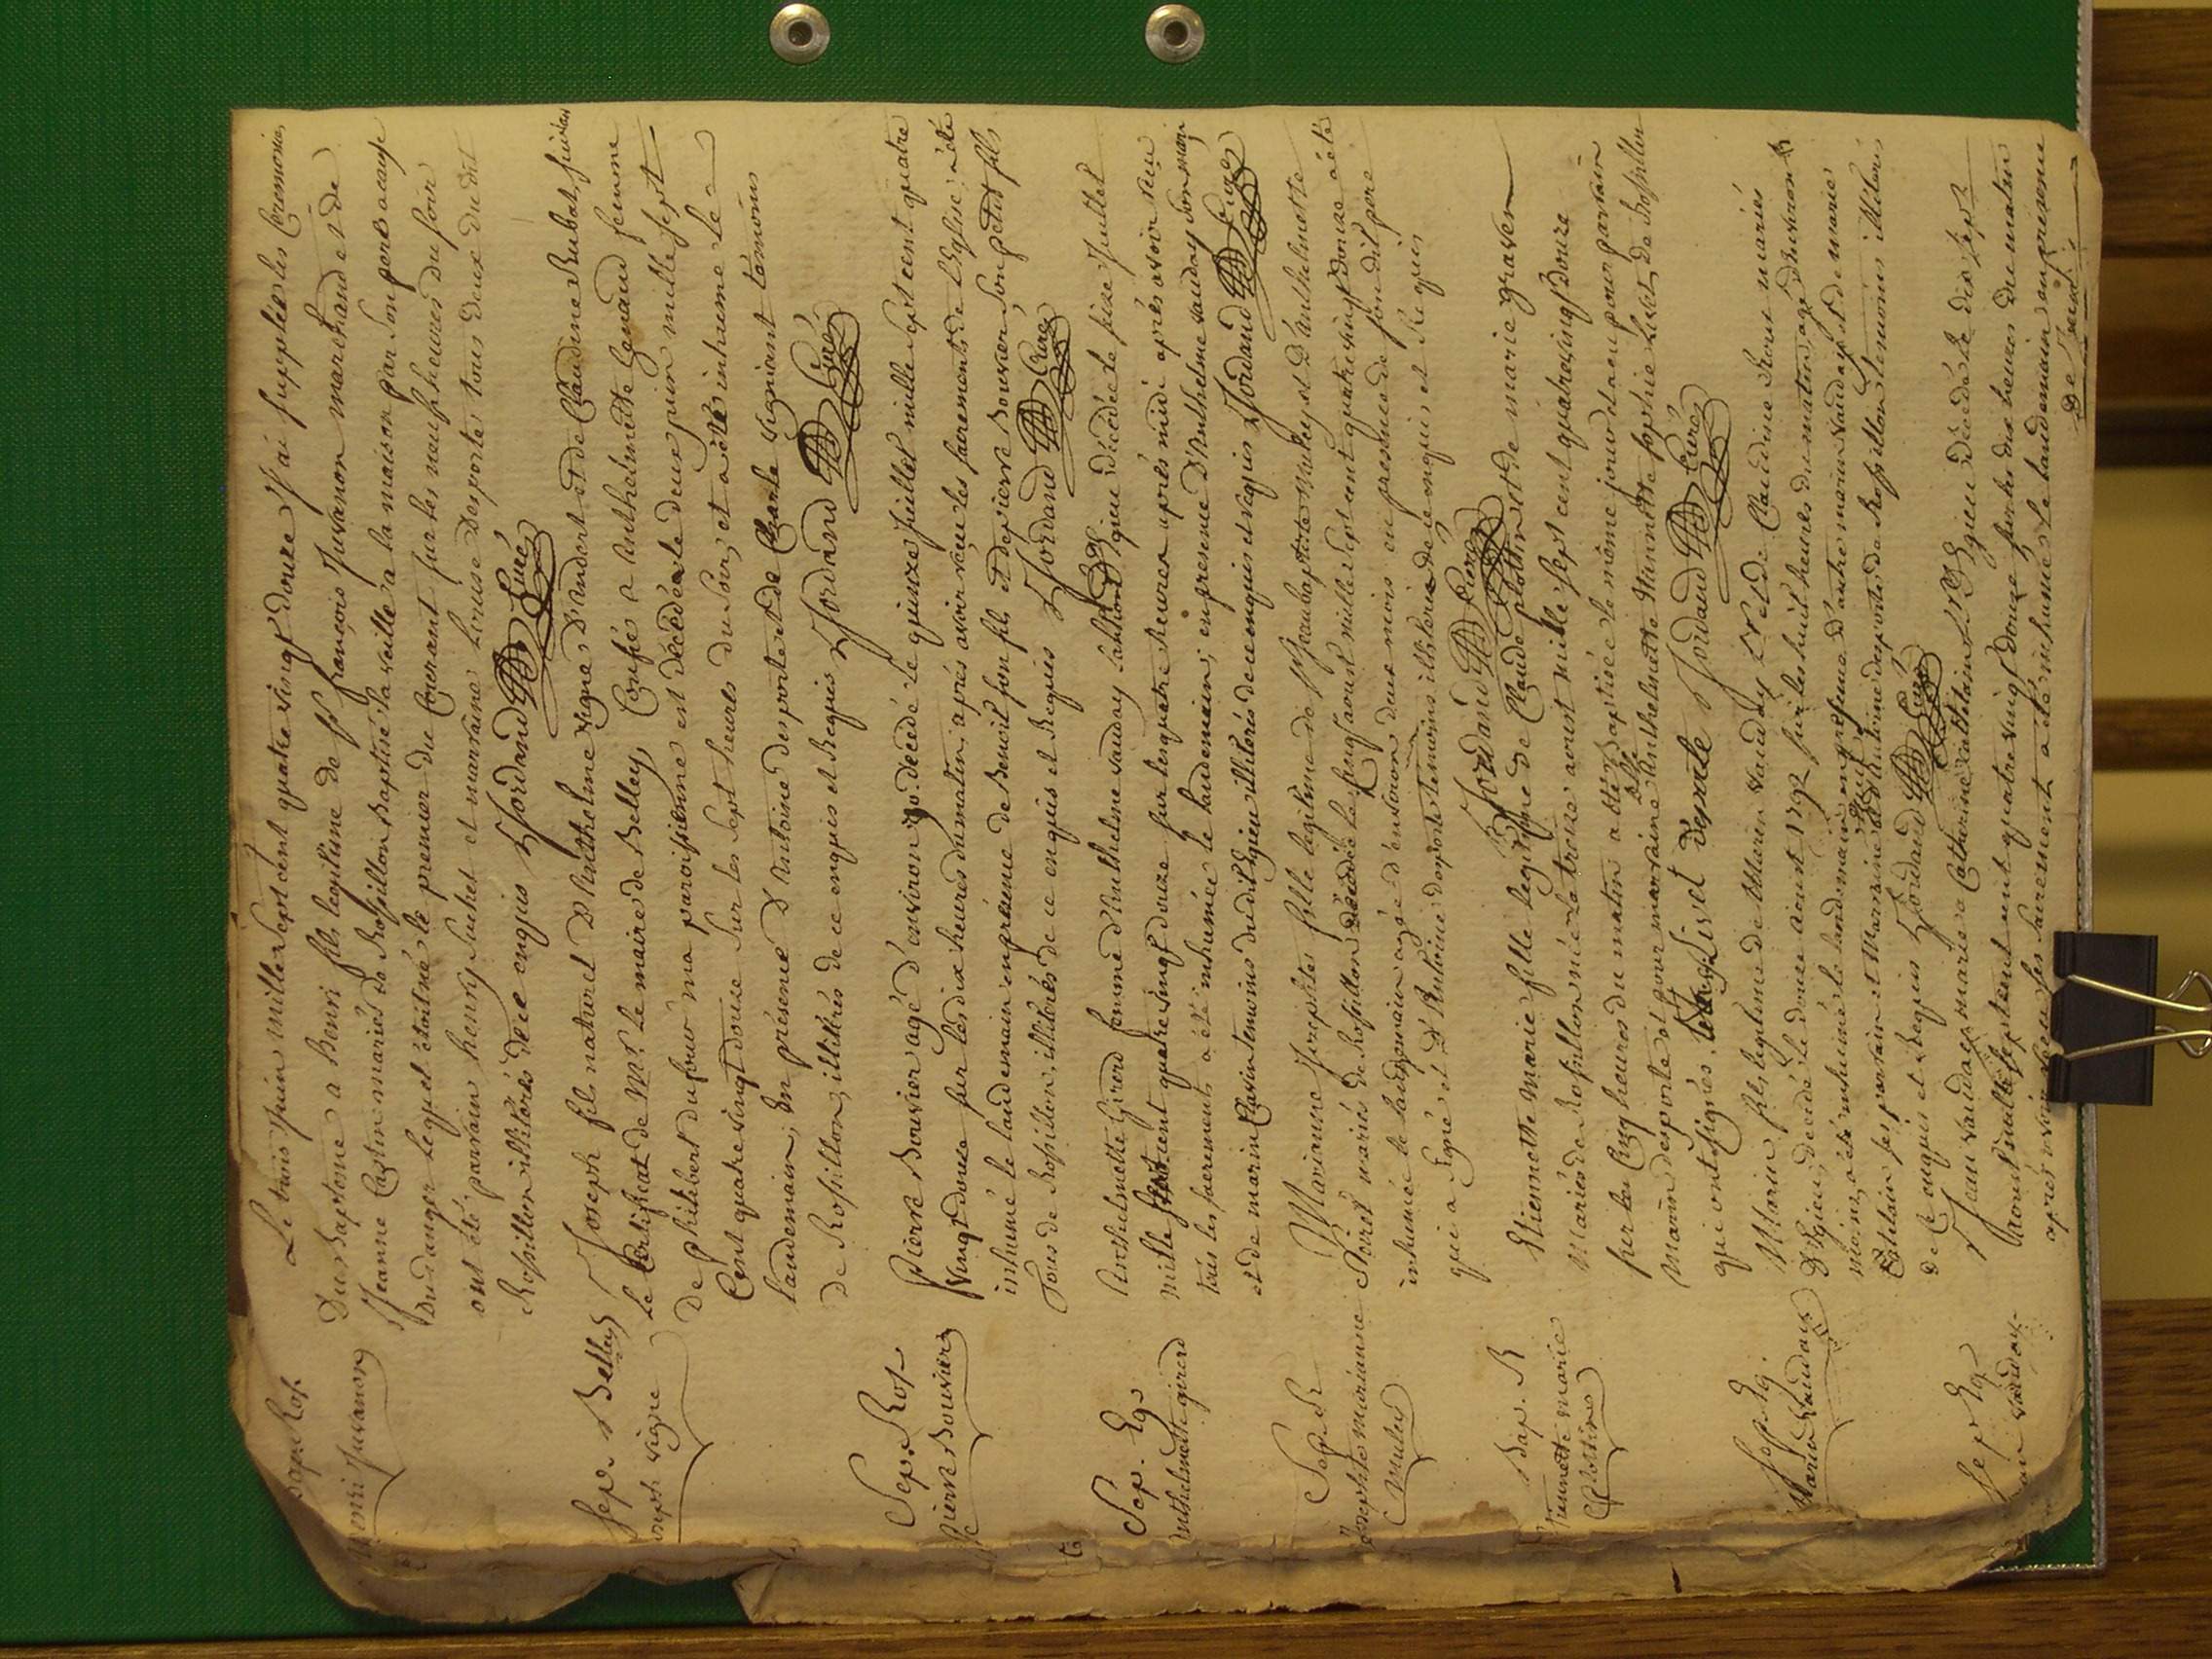 Bap. Ros.
Henri Juvanon
Le trois juin mille sept cent quatre vingt douze J'ai supplée les Ceremonies
Du Bapteme a Henri fils legitime de Sr françois Juvanon marchand et de
Jeanne Castin mariés de Rossillon Baptisé la veille a la maison par Son pere a cause
Du danger lequel étoit né le premier du Courant sur les neuf heures du soir
ont été parrain henry Suchet et marraine Louise Desporte tous deux du dit
Rossillon illitérés de ce enquis Jordand Curé
Sep. Belley
Joseph vigne
Joseph fils naturel D'Anthelme vigne D'andert et de Claudine Rubat, suivant
le Certificat de Mr. le maire de Belley, Confié a Anthelmette Genaud femme
De philibert dufour ma paroissienne est décédé le deux juin mille sept
Cent quatre vingt douze sur les Sept heures du Soir, et a été inhumé le
landemain; En présence D'Antoine desporte et de Charle vignant témoins
de Rossillon, illitérés de ce enquis et Requis Jordand Curé
Sep. Ros.
pierre Bouvier
pierre Bouvier agé d'environ 90. décédé le quinze Juillet mille Sept cent quatre
Vingt douze sur les dix heures du matin, après avoir reçu les Sacrements de l'Eglise, a été
inhumé le landemain en présence de Benoit son fils et de pierre Bouvier Son petit fils
Tous de Rossillon, illitérés de ce enquis et Requis Jordand Curé
Sep. Eg.
Anthelmette girerd
Anthelmette Girerd femme d'Anthelme vauday D'Egieu décédée le seize Juillet
mille Sept cent quatre vingt douze sur les quatre heures après midi après avoir reçu
tous les Sacrements a été inhumée le landemain; en présence D'Anthelme vauday Son mary
et de marin Clavin temoins du dit Egieu illitérés de ce enquis et requis Jordand Curé
Sep. R
Josephte marianne
Mulus
Marianne Josephtes fille legitime de Sr Jean baptiste et D'anthelmette
Poiret mariés de Rossillon décédée le aoust mille Sept cent quatre vingt Douze a été
inhumée le landemain agée d'environ deux mois en presence de son dit pere
qui a Signé et D'Antoine desporte temoins illitéré de ce enquis et Requis
Jordand Curé
Bap. R
Etiennette marie
plottin
Etiennette Marie fille legitime de Claude plottin et de marie graven
Mariés de Rossillon née le treize aoust mille sept cent quatre vingt douze
sur les Cinq heures du matin a été Baptisée le même jour et a eu pour parrain
Marin desporte et pour marraine Dlle Anthelmette Etiennette Sophie Livet de Rossillon
qui ont Signés. Livet Deporte Jordand Curé
Sep. Eg.
Marin Vauday
Marin fils legitime de Marin vauday et de Claudine mariés
D'Egieu, decedé le douze aoust 1792 sur les huit heures du matin, agé d'environ
mois, a été inhumé le landemain en présence D'autre marin vauday et de marie
ses parrain et Marraine et D'Antoine desporte de Rossillon temoins illitérés
de Ce enquis et Requis Jordand Curé
Sep. Eg.
Jean Vauday
Jean vauday mari a Catherine D'Egieu Décédé le dix Sept
aoust mille Sept cent quatre vingt Douze sur les dix heures du matin
après avoir reçu les Sacrements a été inhumé le landemain en presence
De Jean